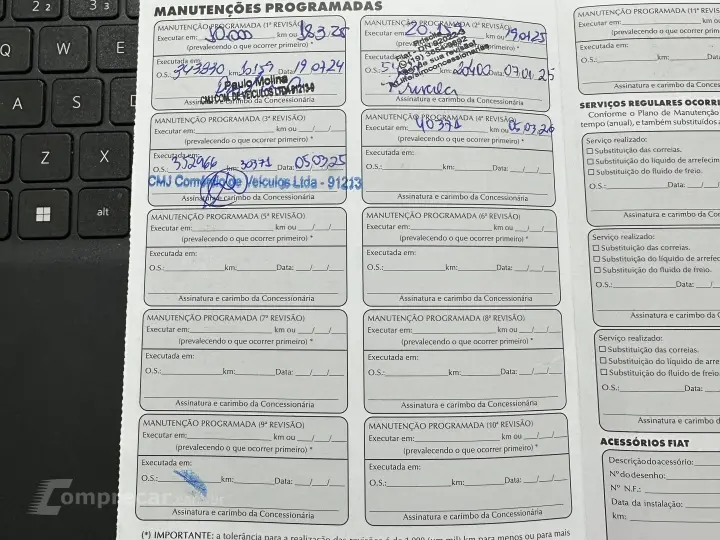 MANUTENÇÕES PROGRAMADAS
MANUTENÇÃO PROGRAMADA (1ª REVISÃO)
Executar em: km ou 18.3.25
(prevalecendo o que ocorrer primeiro) *
Executada em:
O.S.: 343330 km: 10159 Data: 19.07.24
Paulo Molina
CMJ COM. DE VEICULOS LTDA
Assinatura e carimbo da Concessionária
MANUTENÇÃO PROGRAMADA (2ª REVISÃO)
Executar em: km ou 19.07.25
(prevalecendo o que ocorrer primeiro) *
Executada em:
O.S.: km: 20400 Data: 07.01.25
Assinatura e carimbo da Concessionária
MANUTENÇÃO PROGRAMADA (3ª REVISÃO)
Executar em: km ou
(prevalecendo o que ocorrer primeiro) *
Executada em:
O.S.: 352966 km: 30371 Data: 05.03.25
CMJ Comércio de Veículos Ltda - 91213
Assinatura e carimbo da Concessionária
MANUTENÇÃO PROGRAMADA (4ª REVISÃO)
Executar em: 40371 km ou 05.03.26
(prevalecendo o que ocorrer primeiro) *
Executada em:
O.S.: km: Data:
Assinatura e carimbo da Concessionária
MANUTENÇÃO PROGRAMADA (5ª REVISÃO)
Executar em: km ou
(prevalecendo o que ocorrer primeiro) *
Executada em:
O.S.: km: Data:
Assinatura e carimbo da Concessionária
MANUTENÇÃO PROGRAMADA (6ª REVISÃO)
Executar em: km ou
(prevalecendo o que ocorrer primeiro) *
Executada em:
O.S.: km: Data:
Assinatura e carimbo da Concessionária
MANUTENÇÃO PROGRAMADA (7ª REVISÃO)
Executar em: km ou
(prevalecendo o que ocorrer primeiro) *
Executada em:
O.S.: km: Data:
Assinatura e carimbo da Concessionária
MANUTENÇÃO PROGRAMADA (8ª REVISÃO)
Executar em: km ou
(prevalecendo o que ocorrer primeiro) *
Executada em:
O.S.: km: Data:
Assinatura e carimbo da Concessionária
MANUTENÇÃO PROGRAMADA (9ª REVISÃO)
Executar em: km ou
(prevalecendo o que ocorrer primeiro) *
Executada em:
O.S.: km: Data:
Assinatura e carimbo da Concessionária
MANUTENÇÃO PROGRAMADA (10ª REVISÃO)
Executar em: km ou
(prevalecendo o que ocorrer primeiro) *
Executada em:
O.S.: km: Data:
Assinatura e carimbo da Concessionária
(*) IMPORTANTE: a tolerância para a realização das revisões é de 1.000 (um mil) km para menos ou para mais
MANUTENÇÃO PROGRAMADA (11ª REVISÃO)
Executar em: km ou
(prevalecendo o que ocorrer primeiro)
Executada em:
O.S.: km:
Assinatura e carimbo da Concessionária
SERVIÇOS REGULARES OCORR
Conforme o Plano de Manutenção
tempo (anual), e também substituídos a
Serviço realizado:
Substituição das correias.
Substituição do líquido de arrefecim
Substituição do fluido de freio.
O.S.: Data:
Assinatura e carimbo da Co
Serviço realizado:
Substituição das correias.
Substituição do líquido de arrefec
Substituição do fluido de freio.
O.S.: Data:
Assinatura e carimbo da C
Serviço realizado:
Substituição das correias.
Substituição do líquido de arre
Substituição do fluido de freio.
O.S.: Data:
Assinatura e carimbo da
ACESSÓRIOS FIAT
Descrição do acessório:
Nº do desenho:
Nº N.F.:
Data da instalação:
km:
Q W E
A S D
Z X
alt
Comprecar.com.br